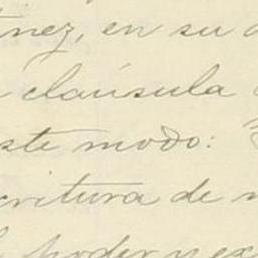 ínez, en su
cláusula
ste modo:
critura de
poder y ex